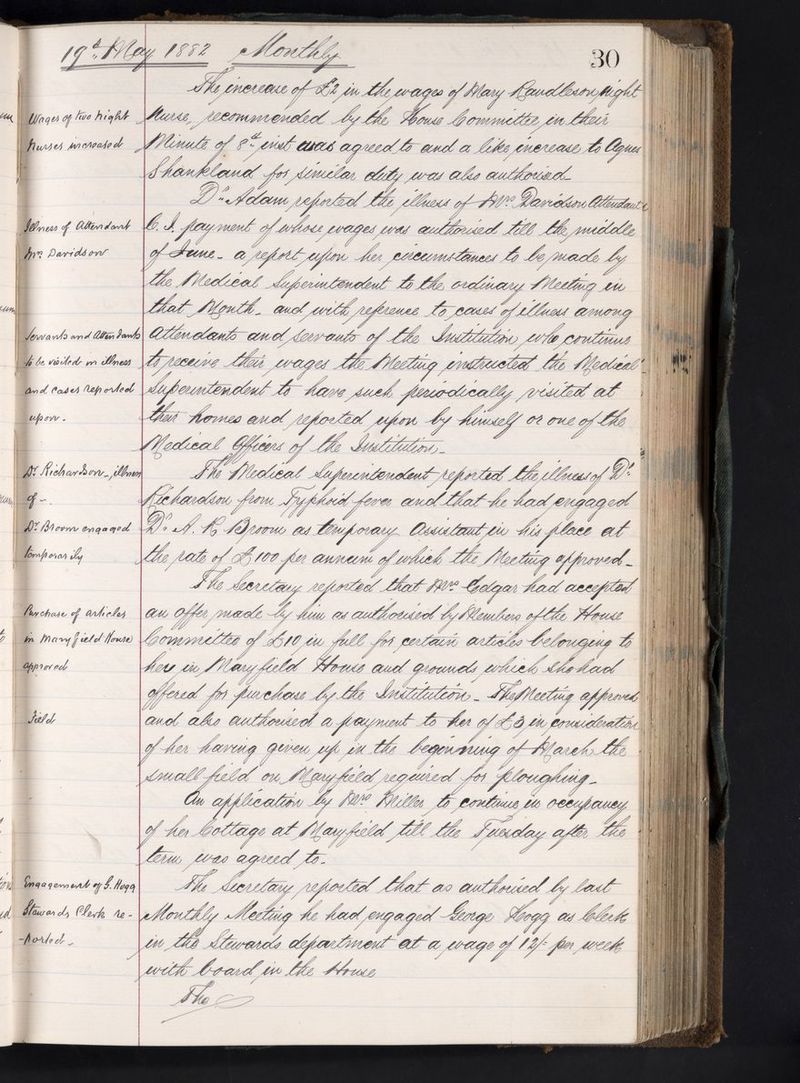 19th May 1882 Monthly
30
The increase of £2 in the wages of Mary Randleson Night
Wages of two Night
Nurse, recommended by the House Committee in their
Nurses increased
Minute of 8th inst was agreed to and a like increase to Agnes
Shankland for similar duty was also authorised
Dr. Adam reported the illness of Mrs. Davidson Attendant
Illness of Attendant
C. I. payment of whose wages was authorised till the middle
Mrs Davidson
of June - a report upon her circumstances to be made by
the Medical Superintendent to the ordinary Meeting in
that Month - and with reference to cases of illness among
Servants and Attendants
Attendants and Servants of the Institution who continue
to be visited in illness
to receive their wages the Meeting instructed the Medical
and cases reported
Superintendent to have such periodically visited at
upon -
their homes and reported upon by himself or one of the
Medical Officers of the Institution -
Dr. Richardson -, illness
The Medical Superintendent reported the illness of Dr.
of -.
Richardson from Typhoid fever and that he had engaged
Dr Broom engaged
Dr. A. R Broom as temporary Assistant in his place at
temporarily
the rate of £100 per annum of which the Meeting approved -
The Secretary reported that Mrs Edgar had accepted
Purchase of articles
an offer made by him as authorised by Members of the House
in Maryfield House
Committee of £10 in full for certain articles belonging to
approved
her in Maryfield House and grounds which she had
offered for purchase by the Institution - The Meeting approved
Field
and also authorised a payment to her of £3 in consideration
of her having given up in the beginning of March the
small field on Maryfield required for ploughing -
An application by Mrs Miller to continue in occupancy
of her Cottage at Maryfield till the Tuesday after the
term was agreed to -
Engagement of G. Hogg
The Secretary reported that as authorised by last
Stewards Clerk re-
Monthly Meeting he had engaged George Hogg as Clerk
-ported -
in the Stewards department at a wage of 12/- per week
with board in the House
The